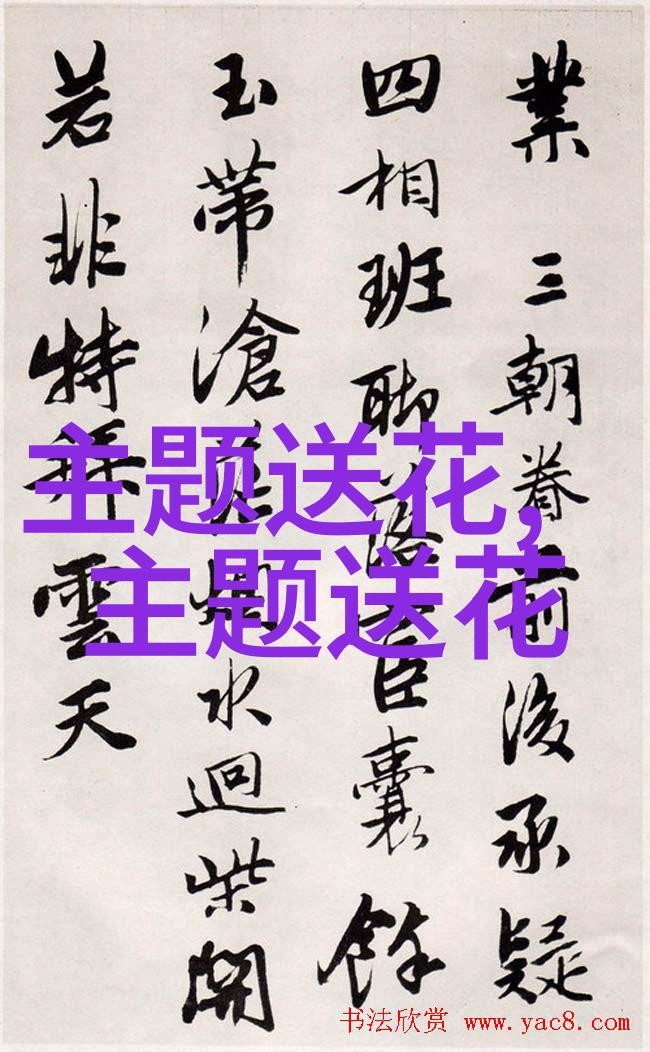 業 三朝眷前後承疑
四相班聊落宦囊餘
玉帶滄茫烟水迴柴關
若非特拜雲天
主题送花，
主题送花
书法欣赏 www.yac8.com